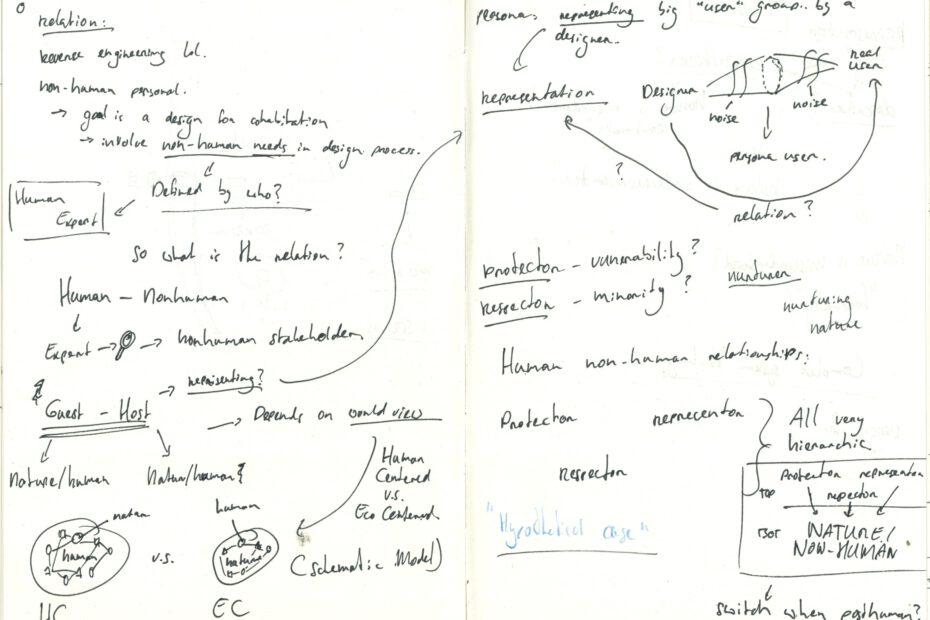 relation:
Reverse engineering lol.
non-human personal.
→ goal is a design for cohabitation
→ involve non-human needs in design process.
Defined by who?
Human
Expert
So what is the relation?
Human - Nonhuman
Expert → → nonhuman stakeholder
→ representing?
Guest - Host
→ Depends on world view
Nature/human
Natur/human
Human
Centered
v.s.
Eco Centered
human
human
v.s.
nature
(schematic Model)
HC
EC
personas, representing big "user" group.. by a
designer.
representation
Designer
real
user
noise
noise
persona user.
?
relation?
Protector - vulnerability?
respector - minority?
nurturer
nurturing
nature
Human non-human relationships:
Protector
representor
respector
All very
hierarchic
"Hypothetical case"
TOP
Protector representor
respector
BOT
NATURE/
NON-HUMAN
switch when posthuman?